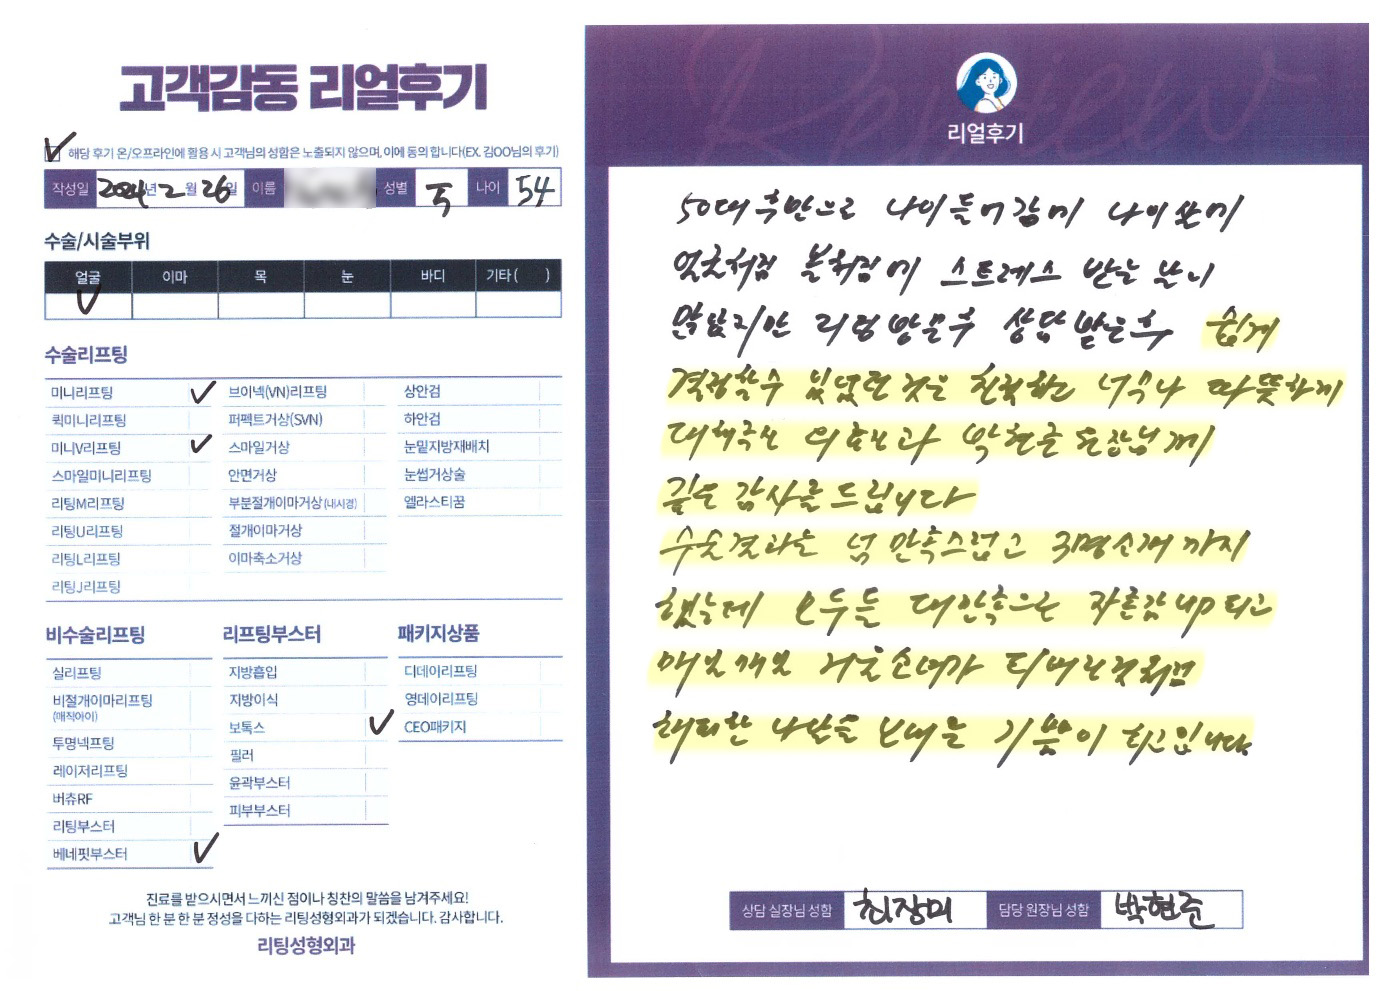 고객감동 리얼후기
해당 후기 온/오프라인에 활용 시 고객님의 성함은 노출되지 않으며, 이에 동의 합니다(EX. 김OO님의 후기)
작성일 2024년 2월 26일 이름 성별 나이 54
수술/시술부위
얼굴 이마 목 눈 바디 기타 ( )
수술리프팅
미니리프팅 브이넥(VN)리프팅 상안검
퀵미니리프팅 퍼펙트거상(SVN) 하안검
미니V리프팅 스마일거상 눈밑지방재배치
스마일미니리프팅 안면거상 눈썹거상술
리팅M리프팅 부분절개이마거상 (내시경) 엘라스티꿈
리팅U리프팅 절개이마거상
리팅L리프팅 이마축소거상
리팅J리프팅
비수술리프팅
실리프팅
비절개이마리프팅
(매직아이)
투명넥프팅
레이저리프팅
버츄RF
리팅부스터
베네핏부스터
리프팅부스터
지방흡입
지방이식
보톡스
필러
윤곽부스터
피부부스터
패키지상품
디데이리프팅
영데이리프팅
CEO패키지
진료를 받으시면서 느끼신 점이나 칭찬의 말씀을 남겨주세요!
고객님 한 분 한 분 정성을 다하는 리팅성형외과가 되겠습니다. 감사합니다.
리팅성형외과
Review
리얼후기
50대 후반으로 나이들어감에 나이살에
스트레스 받는 날이
리팅방문후 상담받은후 쉽게
결정할수 있었던 것은 친절하고 너무나 따뜻하게
대해주신 박현준 원장님께
깊은 감사를 드립니다
수술결과는 넘 만족스럽고 3명소개 까지
했는데 모두들 대만족으로 자존감 up 되고
매일매일 거울소녀가 되버린것처럼
해피한 나날을 보내는 기쁨이 되고있습니다.
상담 실장님 성함 최장미 담당 원장님 성함 박현준